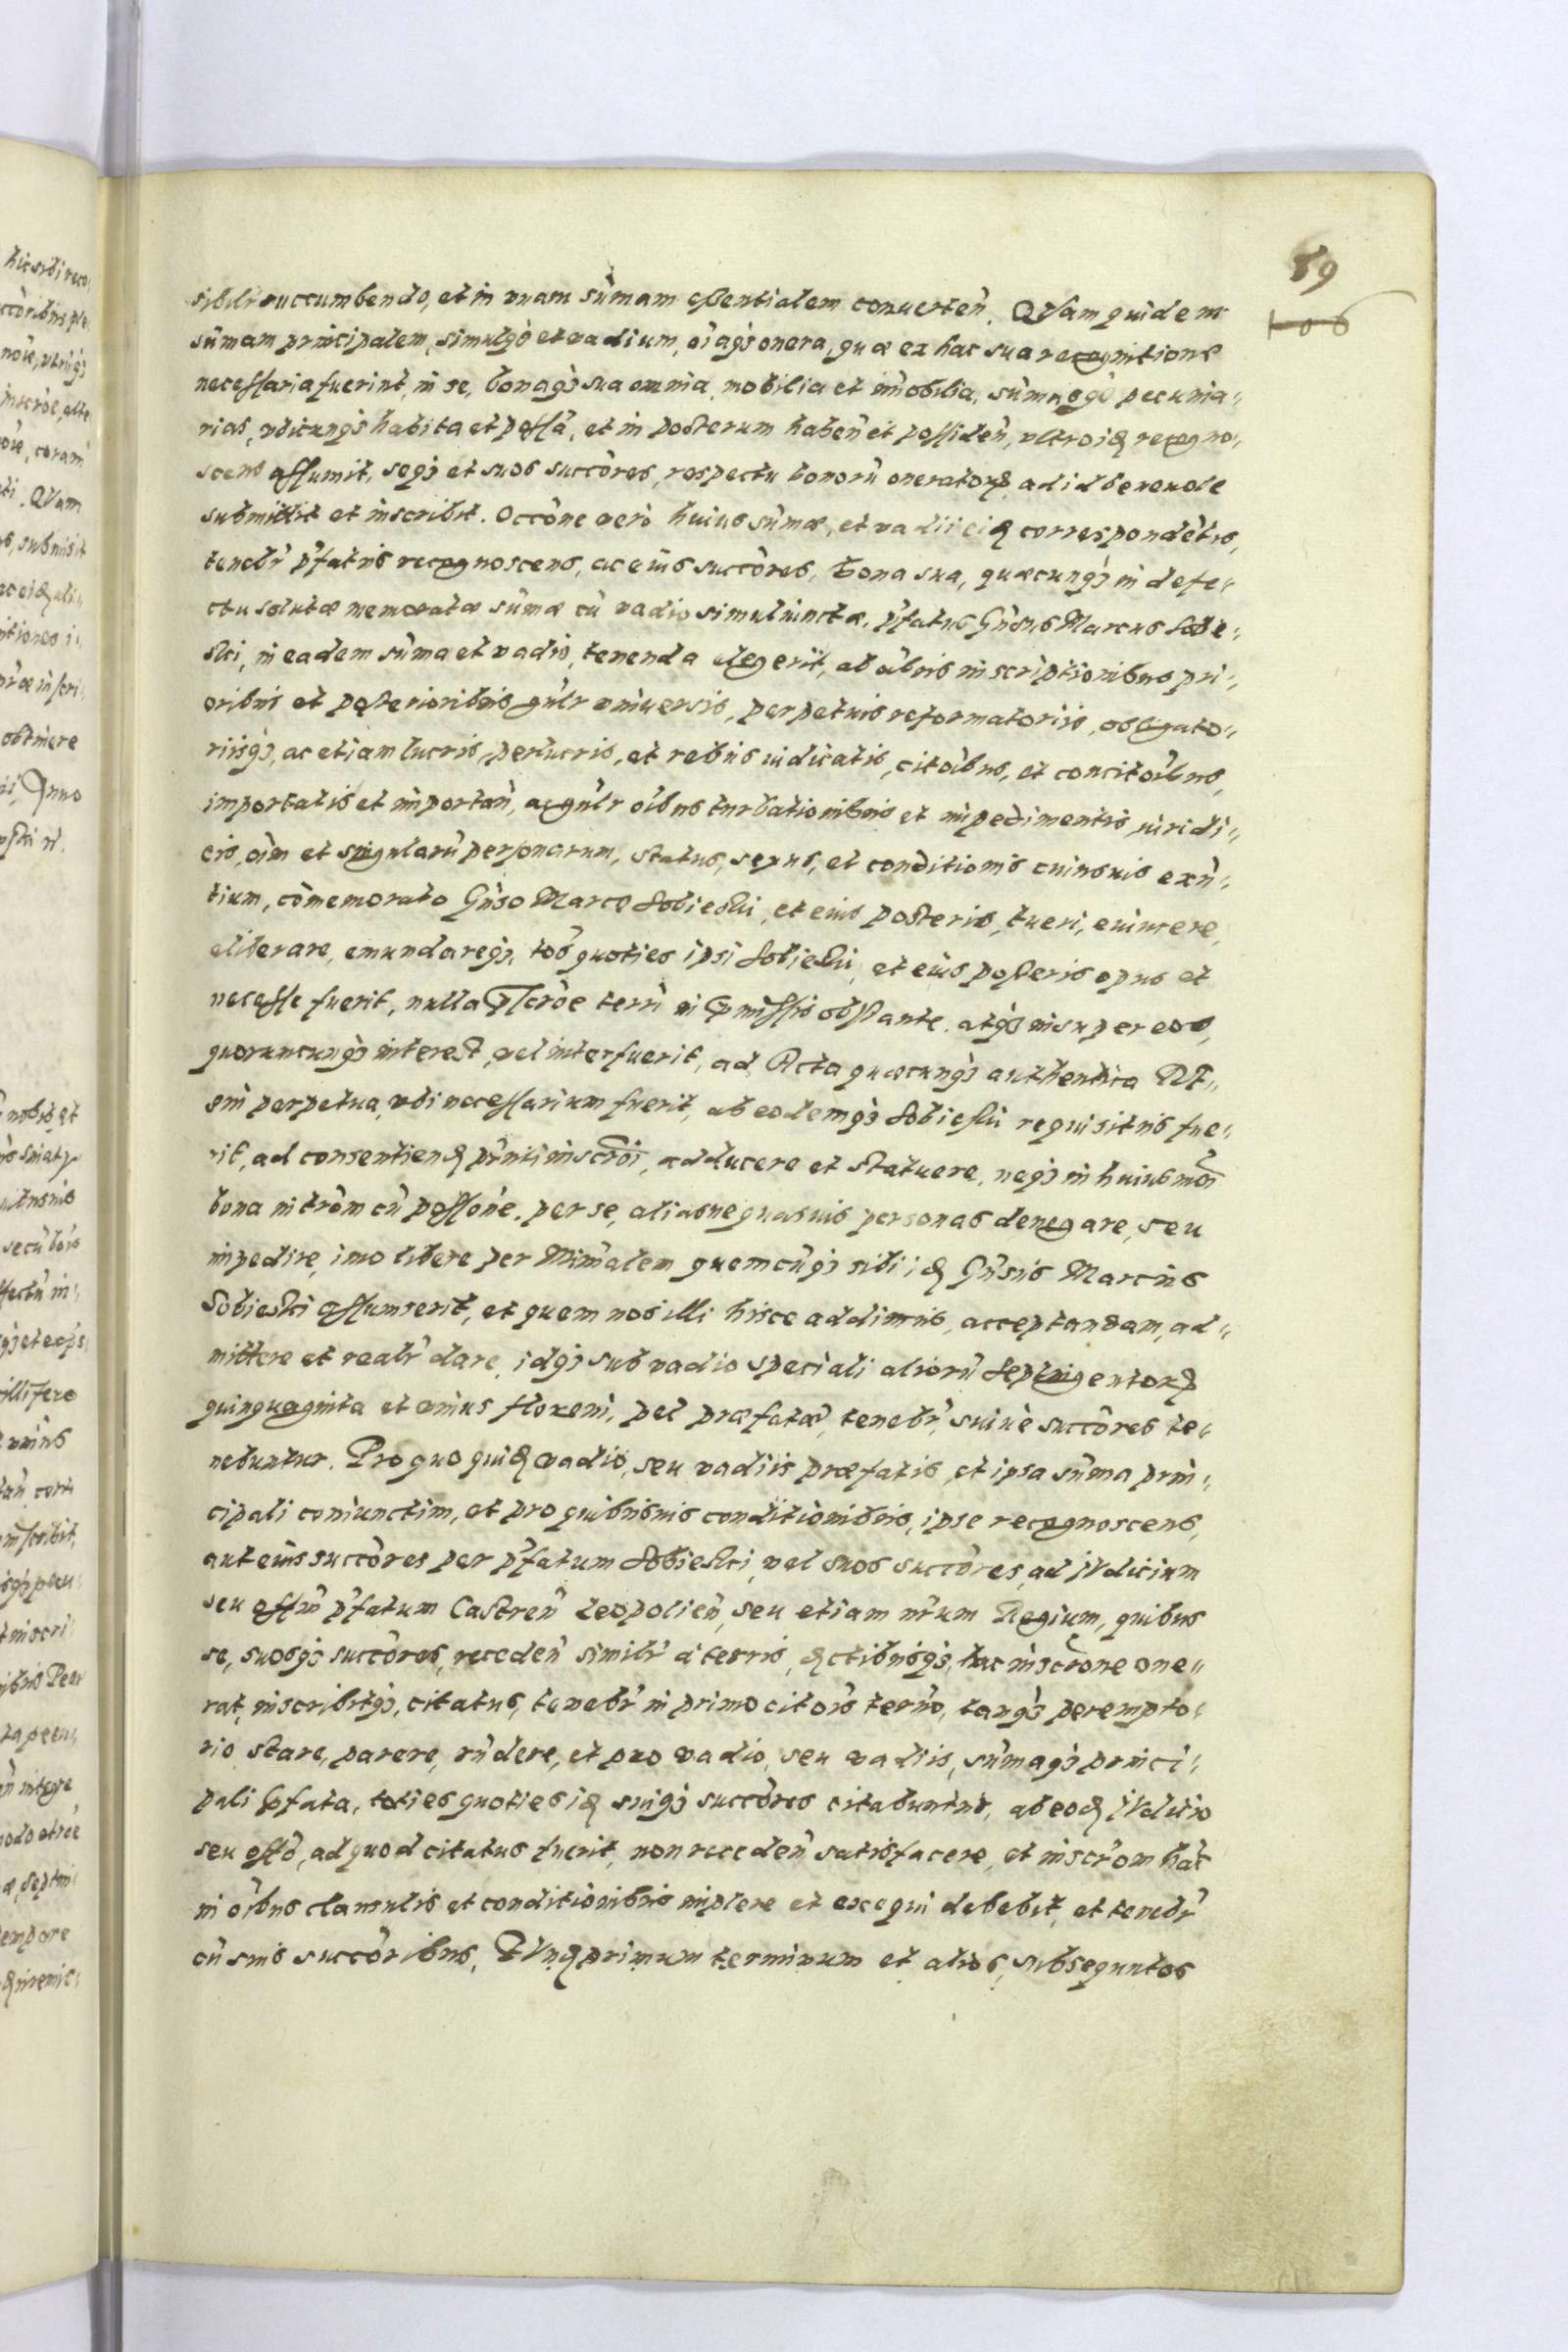 89
106
sibili succumbendo, et in vnam sum̃am eßentialem conuerteñ. QVam quidem
sum̃am principalem, simulqȝ et vadium, oi͂aqȝ onera, quæ ex hac sua recognitione
necessaria fuerint, in se, bonaqȝ sua omnia, mobilia et im̃obilia, sum̃asqȝ pecunia⸗
rias, vbicunqȝ habita et possa͂, et in posterum habeñ et possideñ, vltro idẽ recogno⸗
scens assumit, seqȝ et suos succo͂res, respectu bonorũ oneratorꝝ ad id beneuole
submittit et inscribit. Occo͂ne vero huius sum̃æ, et vadii eidẽ correspondẽtis,
teneb͂r p͂fatus recognoscens, ac eius succo͂res, bona sua, quæcunqȝ in defe⸗
ctu solutæ memoratæ sum̃æ cũ vadio simul iunctæ, p͂fatus Gn͂sus Marcus Sobie⸗
ski, in eadem sum̃a et vadio, tenenda elegerit, ab oi͂bus inscriptionibus pri⸗
oribus et posterioribus gn͂lr vniuersis, perpetuis reformatoriis, obligato⸗
riisqȝ, ac etiam lucris, perlucris, et rebus iudicatis, cito͂ibus, et concito͂ibus,
importatis et importañ, ac gn͂lr oi͂bus turbationibus et impedimentis iuridi⸗
cis, oi͂m et singularũ personarum, status, sexus, et conditionis cuiusuis exñ⸗
tium, com̃emorato Gn͂so Marco Sobieski, et eius posteris, tueri, euincere,
eliberare, emundareqȝ, toties quoties ipsi Sobieski, et eius posteris opus et
necesse fuerit, nulla p͂scro͂e terrũ in p͂missis obstante. atqȝ insuper eos,
quorumcunqȝ interest, vel interfuerit, ad Acta quæcunqȝ authentica Rt⸗
gni perpetua, vbi necessarium fuerit, ab eodemqȝ Sobieski requisitus fue⸗
rit, ad consentiendẽ pn͂ti inscro͂i, adducere et statuere, neqȝ in huiusmo͂i
bona intro͂m cũ posso͂ne, per se, aliasue quasuis personas denegare, seu
impedire, imo libere per Mi͂nalem quemcũqȝ sibi idẽ Gn͂sus Marcus
Sobieski assumserit, et quem nos illi hisce addimus, acceptandam, ad⸗
mittere et realr͂ dare, idqȝ sub vadio speciali aliorũ Septingentorꝝ
quinquaginta et vnius floreni, vel præfatæ, teneb͂r, suiue succo͂res te⸗
nebuntur. Pro quo quidẽ vadio, seu vadiis præfatis, et ipsa sum̃a prin⸗
cipali coniunctim, et pro quibusuis conditionibus, ipse recognoscens,
aut eius succo͂res per p͂fatum Sobieski, vel suos succo͂res, ad iVdicium
seu off͂m p͂fatum Castreñ Leopolieñ, seu etiam nr͂um Regium, quibus
se, suosqȝ succo͂res, recedeñ similr͂ a͂ terris, dẽctibusqȝ, hac inscro͂ne one⸗
rat, inscribitqȝ, citatus, teneb͂r in primo cito͂is terño, tanqȝ perempto⸗
rio stare, parere, rñdere, et pro vadio, seu vadiis, sum̃aqȝ princi⸗
pali p͂fata, toties quoties idẽ suiqȝ succo͂res citabuntur, ab eodẽ iVdicio
seu offo͂, ad quod citatus fuerit, non recedeñ satisfacere, et inscro͂m hãc
in oi͂bus clausulis et conditionibus implere et exequi debebit, et teneb͂r
cũ suis succo͂ribus, primum terminum et alios, subsequutos